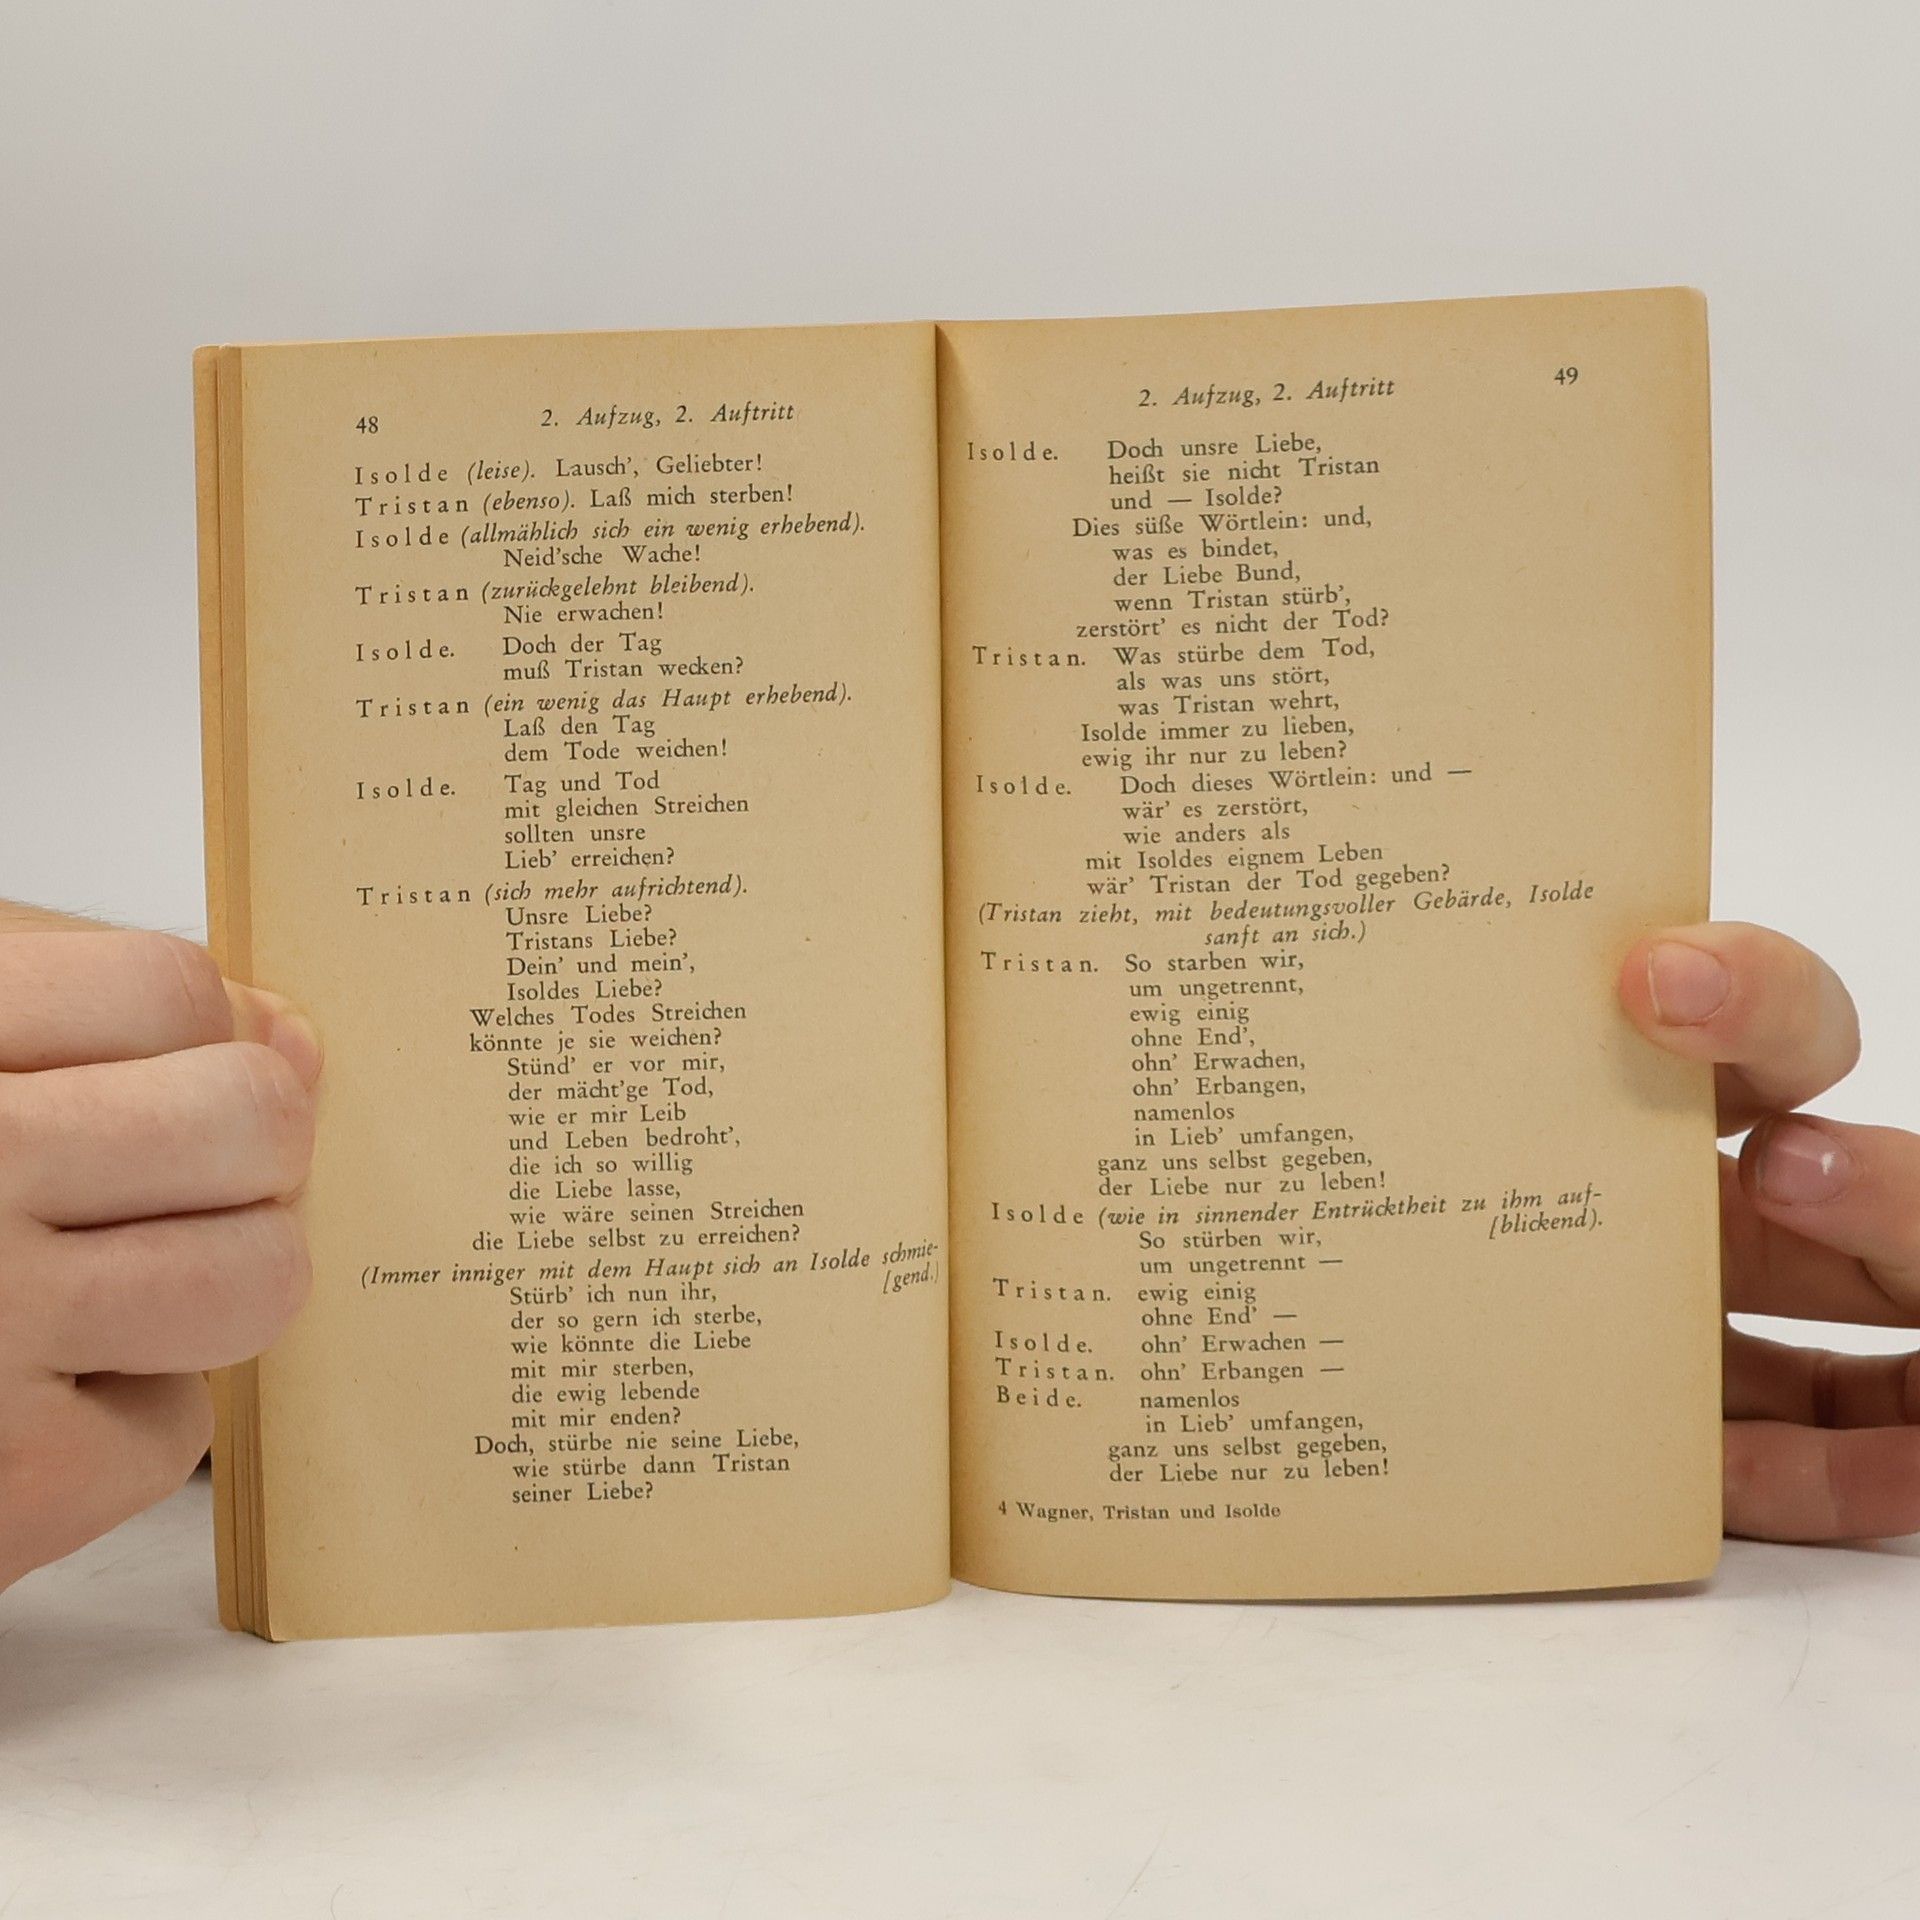 48
2. Aufzug, 2. Auftritt
Isolde (leise). Lausch’, Geliebter!
Tristan (ebenso). Laß mich sterben!
Isolde (allmählich sich ein wenig erhebend).
Neid’sche Wache!
Tristan (zurückgelehnt bleibend).
Nie erwachen!
Isolde. Doch der Tag
muß Tristan wecken?
Tristan (ein wenig das Haupt erhebend).
Laß den Tag
dem Tode weichen!
Isolde. Tag und Tod
mit gleichen Streichen
sollten unsre
Lieb’ erreichen?
Tristan (sich mehr aufrichtend).
Unsre Liebe?
Tristans Liebe?
Dein’ und mein’,
Isoldes Liebe?
Welches Todes Streichen
könnte je sie weichen?
Stünd’ er vor mir,
der mächt’ge Tod,
wie er mir Leib
und Leben bedroht’,
die ich so willig
die Liebe lasse,
wie wäre seinen Streichen
die Liebe selbst zu erreichen?
(Immer inniger mit dem Haupt sich an Isolde schmie-
[gend.)
Stürb’ ich nun ihr,
der so gern ich sterbe,
wie könnte die Liebe
mit mir sterben,
die ewig lebende
mit mir enden?
Doch, stürbe nie seine Liebe,
wie stürbe dann Tristan
seiner Liebe?
2. Aufzug, 2. Auftritt
49
Isolde. Doch unsre Liebe,
heißt sie nicht Tristan
und — Isolde?
Dies süße Wörtlein: und,
was es bindet,
der Liebe Bund,
wenn Tristan stürb’,
zerstört’ es nicht der Tod?
Tristan. Was stürbe dem Tod,
als was uns stört,
was Tristan wehrt,
Isolde immer zu lieben,
ewig ihr nur zu leben?
Isolde. Doch dieses Wörtlein: und —
wär’ es zerstört,
wie anders als
mit Isoldes eignem Leben
wär’ Tristan der Tod gegeben?
(Tristan zieht, mit bedeutungsvoller Gebärde, Isolde
sanft an sich.)
Tristan. So starben wir,
um ungetrennt,
ewig einig
ohne End’,
ohn’ Erwachen,
ohn’ Erbangen,
namenlos
in Lieb’ umfangen,
ganz uns selbst gegeben,
der Liebe nur zu leben!
Isolde (wie in sinnender Entrücktheit zu ihm auf-
[blickend).
So stürben wir,
um ungetrennt —
Tristan. ewig einig
ohne End’ —
Isolde. ohn’ Erwachen —
Tristan. ohn’ Erbangen —
Beide. namenlos
in Lieb’ umfangen,
ganz uns selbst gegeben,
der Liebe nur zu leben!
4 Wagner, Tristan und Isolde